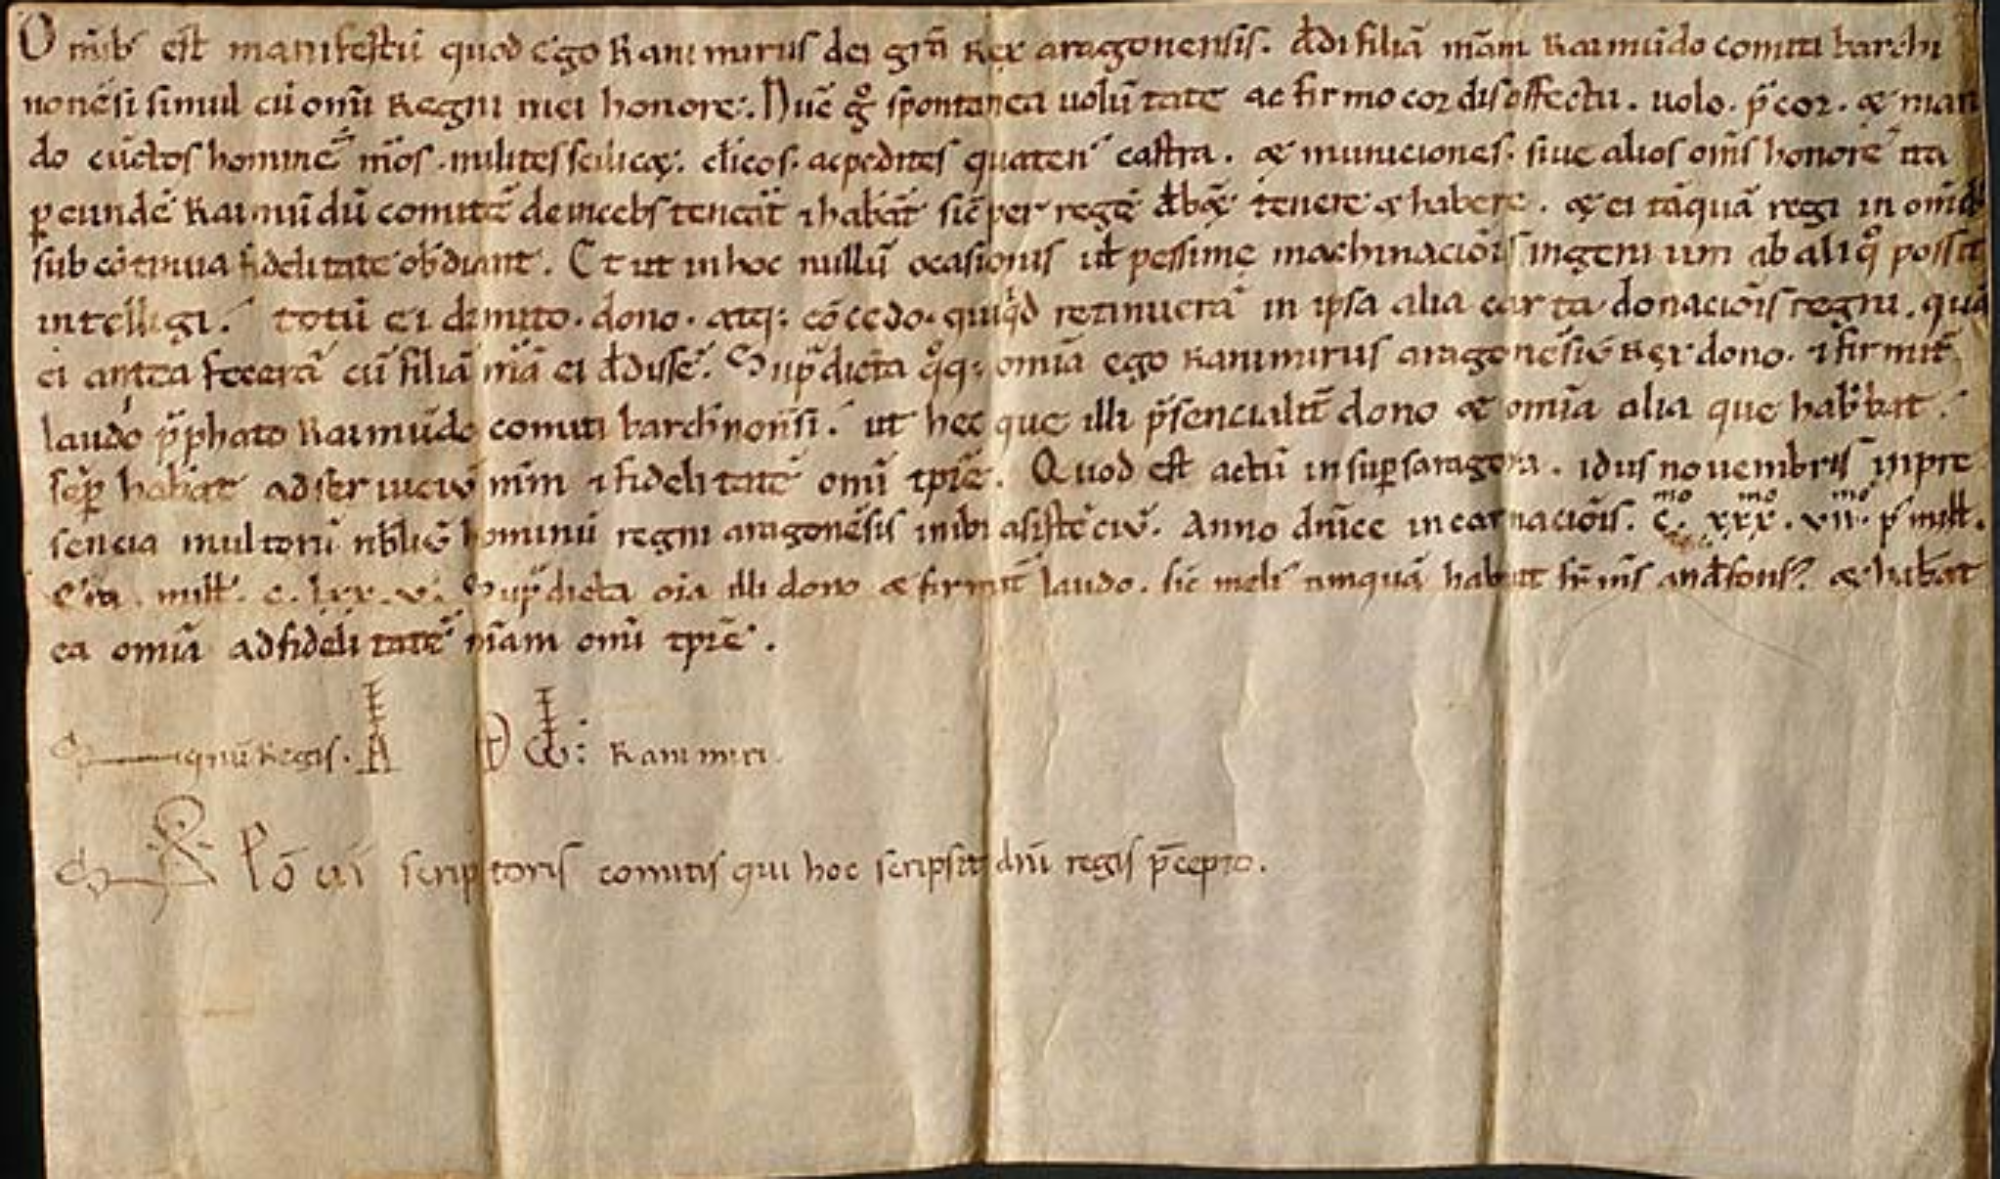 Omib' est manifestū quod ego Ranimirus dei gr̄a rex aragonensis. dedi filiā meam Raimūdo comiti barchi
nonēsi simul cū omī Regni mei honore. Nūc g̊ spontanea uolūtate ac firmo cordis affectu. uolo. p̄cor. & man
do cūctos homines m̄os. milites scilicet. cl̄icos. ac pedites quaten' castra. & municiones. siue alios om̄s honores ita
p eundē Raimūdū comitē deinceps teneāt & habeāt sic̄ per regē debēt tenere & habere. & ei tāquā regi in omīb'
sub cōtinua fidelitate obediant. Et ut in hoc nullū ocasionis uel pessime machinaciōis ingenium ab aliq̊ possit
intelligi. totū ei dimito. dono. atq; cōcedo. quicq̄d retinuerā in ipsa alia carta donaciōis regni. quā
ei antea fecerā cū filiā m̄ā ei dedissē. Sup̄dicta q̊q; om̄ia ego Ranimirus aragonēsiū Rex dono. & firmit̄
laudo p̄phato Raimūdo comiti barchinonēsi. ut hec que illi p̄sencialit̄ dono & om̄ia alia que habebat.
sēp habeat ad seruiciū m̄m & fidelitatē omī tp̄re. Quod est actū in sup̄saragoza. idus nouembris in pre
sencia multorū nobiliū hominū regni aragonēsis inibi asistēciū. Anno dn̄ice incarnaciōis. c.mo xxx.mo vii.mo p' mill'.
Era. mill'. c. lxx. v. Sup̄dicta oīa illi dono & firmit̄ laudo. sic meli' nunquā habuit fr̄ m̄s andefons'. & habeat
ea om̄ia ad fidelitatē m̄am omī tp̄re.
Signū Regis. Ranimiri.
S Pōcii scriptoris comitis qui hoc scripsit dn̄i regis p̄cepto.